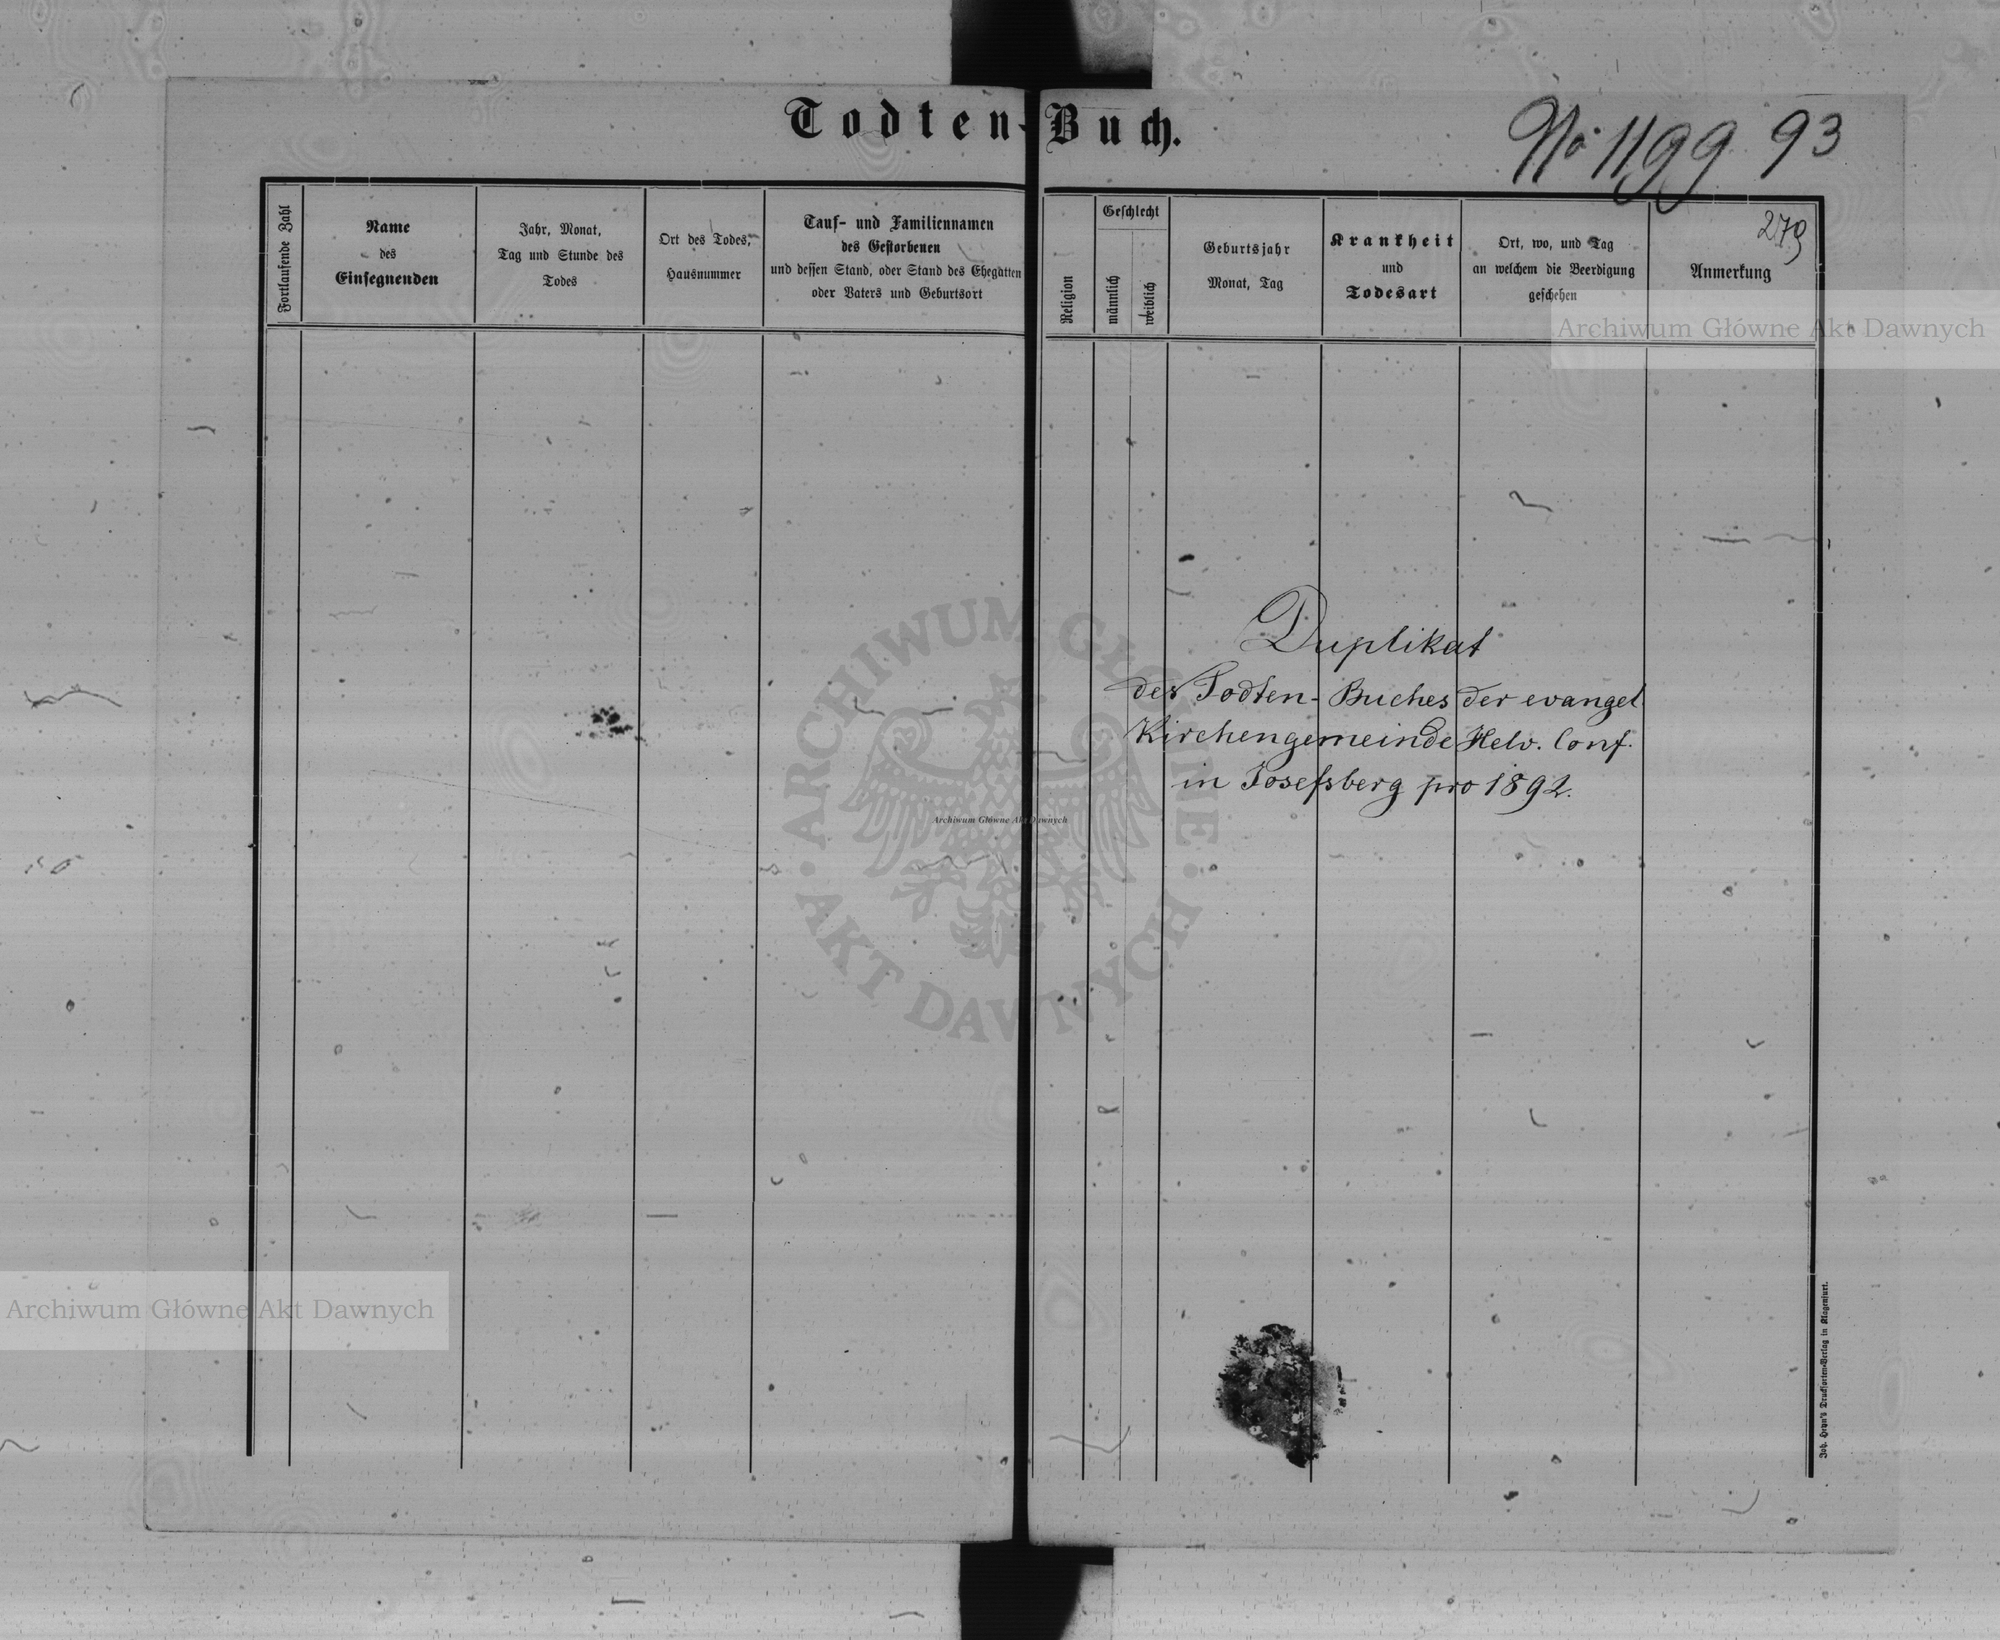 Todten-Buch.
No 1199 93
279
Fortlaufende Zahl
Name
des
Einsegnenden
Jahr, Monat,
Tag und Stunde des
Todes
Ort des Todes,
Hausnummer
Tauf- und Familiennamen
des Gestorbenen
und dessen Stand, oder Stand des Ehegatten
oder Vaters und Geburtsort
Religion
Geschlecht
männlich
weiblich
Geburtsjahr
Monat, Tag
Krankheit
und
Todesart
Ort, wo, und Tag
an welchem die Beerdigung
geschehen
Anmerkung
Archiwum Główne Akt Dawnych
Duplikat
des Todten-Buches der evangel.
Kirchengemeinde Helv. Conf.
in Josefsberg pro 1892.
ARCHIWUM GŁÓWNE
AKT DAWNYCH
Archiwum Główne Akt Dawnych
Archiwum Główne Akt Dawnych
Joh. Heyn's Drucksorten-Verlag in Klagenfurt.